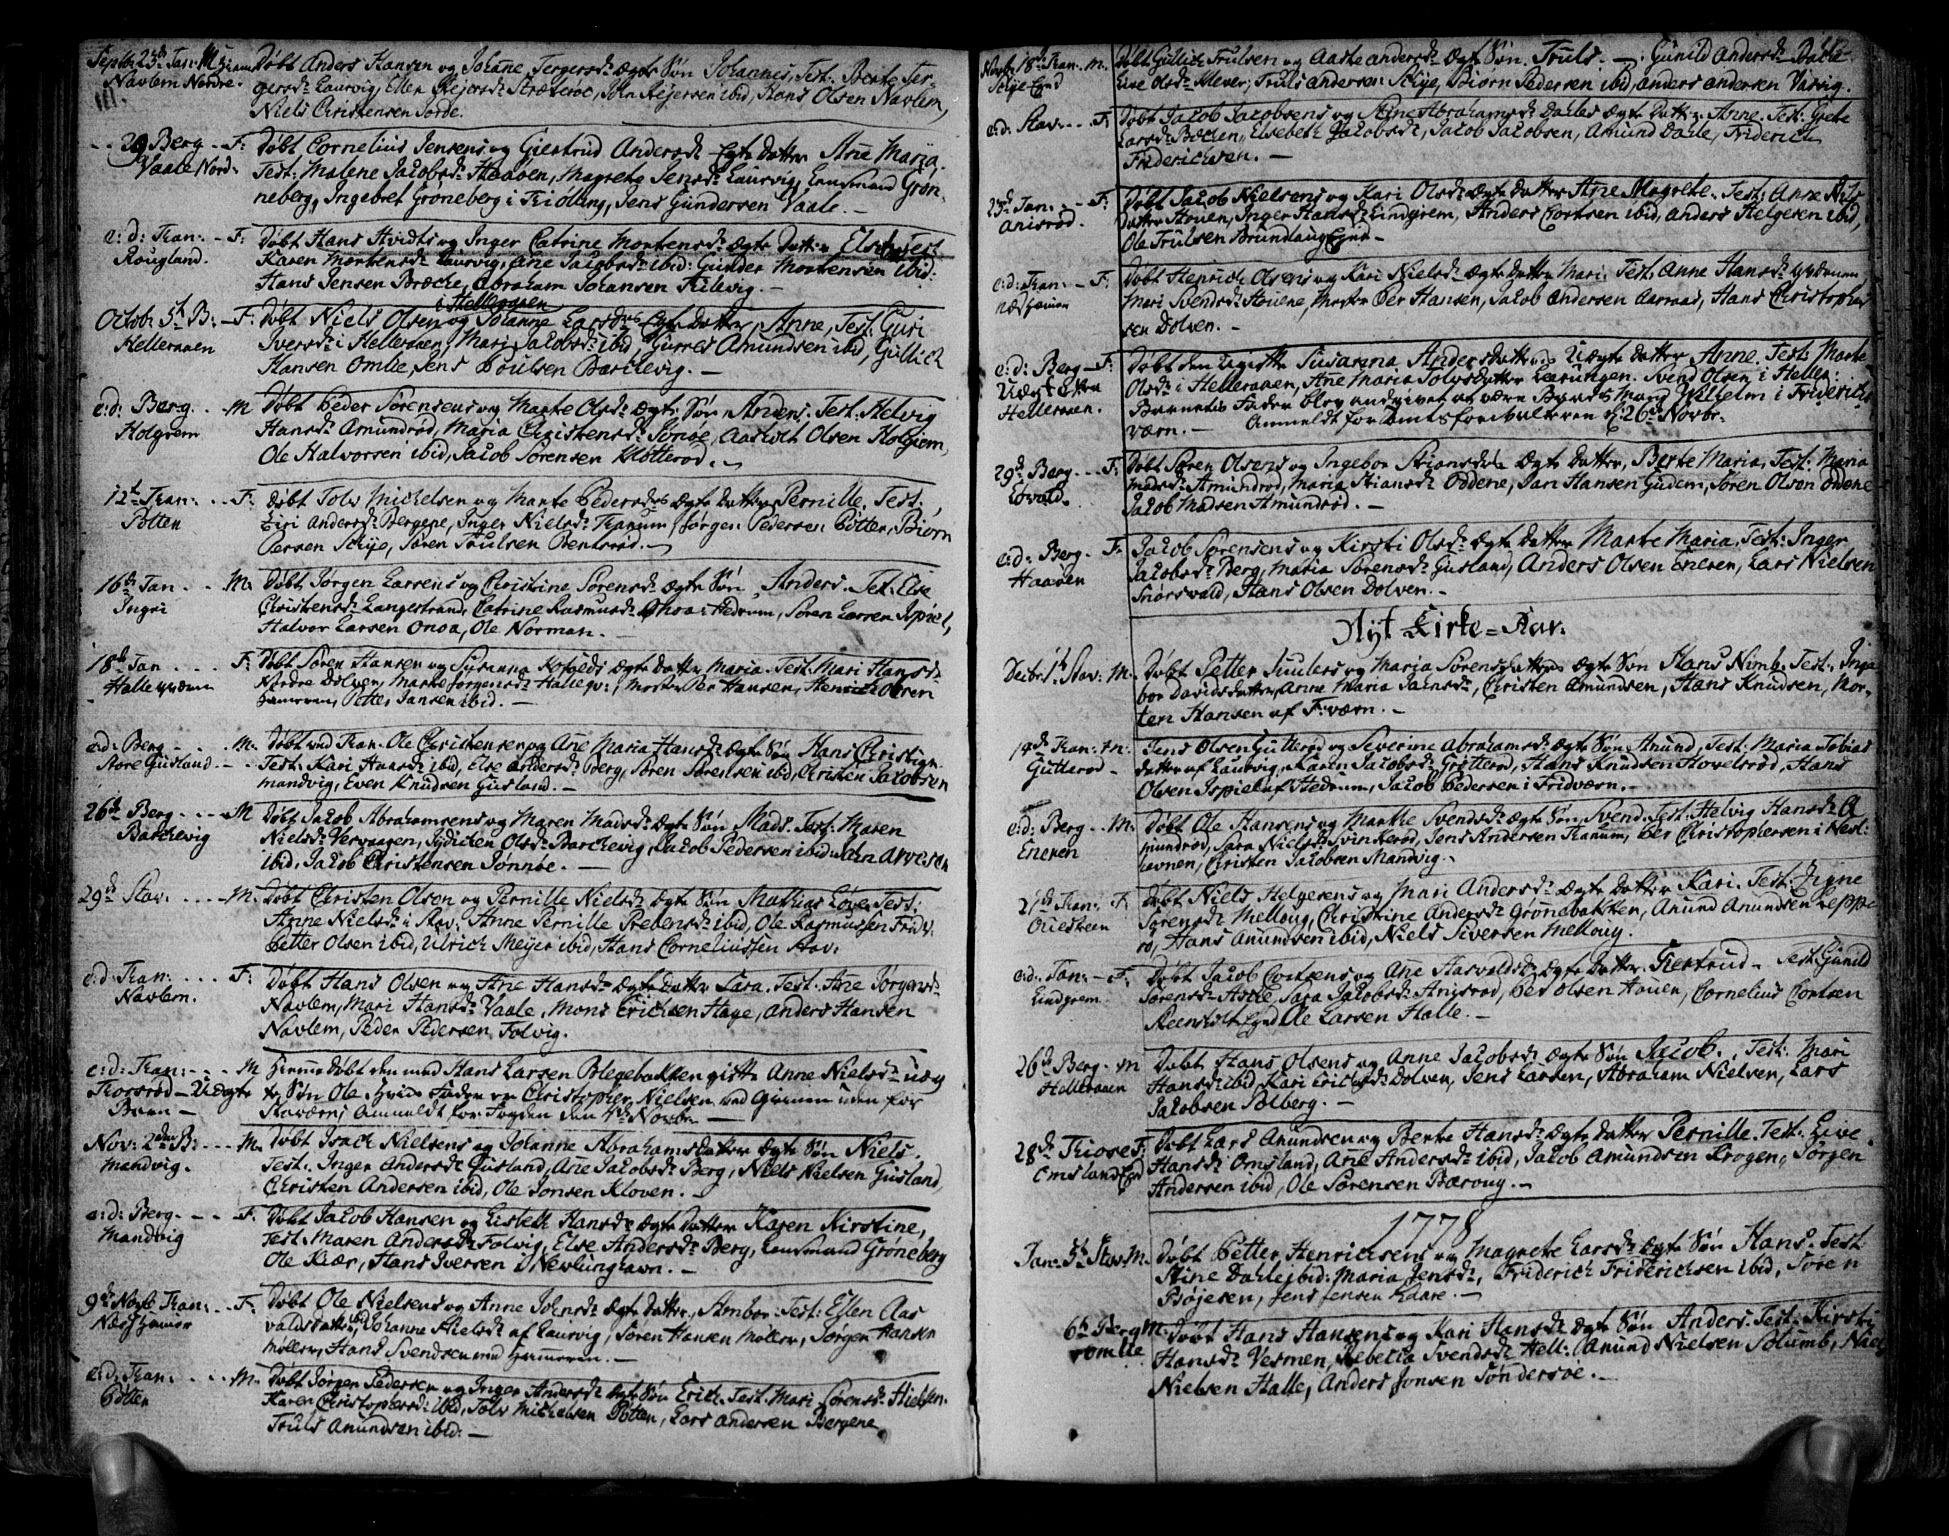 Septbr 23d Tan: M: Døbt Anders Hansen og Johanne Tergersd: Ægte Søn Johannes, Test: Berte Ter
Navlem Nordre. gersd: Laurvig, Ellen Rejersd: John Rejersen ibid, Hans Olsen Navlem,
Niels Christensen Jorde.
29 Berg F: Døbt Cornelius Jensens og Giertrud Andersd: Ægte Datter Ane Maria.
Vaale Nord: Test: Malene Jacobsd: Haaven, Magrete Jensd: Laurvig, Lensmand Grøn
neberg, Ingebret Grøneberg i Tiølling, Jens Gundersen Vaale. —
e: d: Tran: F: Døbt Hans Hvidts og Inger Catrine Mortensd: Ægte Datter Else Test
Rougland. Karen Mortensd: Laurvig, Ane Jacobsd: ibid: Gunder Mortensen ibid:
Hans Jensen Bræche, Abraham Johansen Tulvig. —
i Helleraaen
Octob: 5t B: F: Døbt Niels Olsen og Johanne Larsd: Ægte Datter Anne, Test: Guri
Helleraaen Iversd: i Helleraaen, Mari Jacobsd: ibid, Amundsen ibid, Gullich
Hansen Omlie, Jens Poulsen Barchevig. —
e: d: Berg. M Døbt Peder Sørensens og Marte Olsd: Ægte Søn Anders. Test: Helvig
Holgrem Hansd: Amundrød, Maria Christensd: Aasholt Olsen Holgrem,
Ole Halvorsen ibid, Jacob Sørensen Kløtterød. —
12t Tran: F: Døbt Tolv Michelsen og Marte Pedersd: Ægte Datter Pernille. Test:
Pøtten Andersd: Bergene, Inger Nielsd: Tranum, Jørgen Pedersen Pøtten, Biørn
Persen Schije, Søren Trulsen Bentsrød. —
16de Tan M: Døbt Jørgen Larsens og Christine Sørensd: Ægte Søn Anders. Test: Else
Christensd: Langestrand, Catrine Rasmusd: Hedrum, Søren Larsen Ispiel,
Halvor Larsen Onoa, Ole Norman. —
18d Tan F: Døbt Søren Hansen og Susanna Ægte Datter Maria. Test: Mari Hansd:
Nordre Dolven, Marte Jørgensd: Mester Per Hansen, Henrich Olsen
Petter Jansen ibid. —
e: d: Berg M: Døbt ved Tran: Ole Christensen og Ane Maria Hansd: Ægte Søn Hans Christian
Store Gusland Test: Kari Hansd: ibid, Else Andersd: Berg, Søren Sørensen ibid, Christen Jacobsen
mandvig, Even Knudsen Gusland. —
26d Berg M Døbt Jacob Abrahamsens og Maren Madsd: Ægte Søn Mads. Test: Maren
Barchevig Nielsd: Vervaagen, Olsd: Barchevig, Jacob Pedersen ibid, John Arvesen
ibid, Jacob Christensen —
29d Stav: M: Døbt Christen Olsen og Pernille Nielsd: Ægte Søn Mathias Test:
Anne Nielsd: i Stav: Anne Pernille Prebensd: ibid, Ole Rasmussen Fridv:
Petter Olsen ibid, Ulrich Meijer ibid, Hans Corneliussen Stav:
e: d: Tran: F: Døbt Hans Olsen og Ane Hansd: Ægte Datter Sara. Test: Ane Jørgensd:
Navlem. Navlem, Mari Hansd: Vaale, Mons Erichsen Hage, Anders Hansen
Navlem, Peder Pedersen Tolvig.
e: d: Tran: M Hans Larsen Blegebakken gifte Anne Nielsd: uæg
Torsrød Uægte te Søn Ole, Fader er Christopher Nielsen
Barn anmeldt for Fogden den 4de Novbr. —
Nov: 2den B: M. Døbt Isach Nielsens og Johanne Abrahamsdatter Ægte Søn Niels.
Mandvig. Test: Inger Andersd: Gusland, Ane Jacobsd: Berg, Niels Nielsen Gusland,
Christen Andersen ibid, Ole Jonsen Kloven. —
e: d: Berg F: Døbt Jacob Hansen og Lisbeth Hansd: Ægte Datter Karen Kirstine,
Mandvig Test: Maren Andersd: Folvig, Else Andersd: Berg, Lensmand Grøneberg
Ole Kiær, Hans Iversen i Nevlunghavn. —
9de Novb: Tran: F: Døbt Ole Nielsens og Anne Johnsd: Ægte Datter Ambor. Test: Ellen Aas
valdsdatter, Johanne Nielsd: af Laurvig, Søren Hansen Møller, Jørgen Hansen
Møller, Hans Svendsen —
e: d. Tran: M. Døbt Jørgen Pedersen og Inger Andersd: Ægte Søn Erich. Test: Mari Sørensd:
Pøtten Karen Christophersd: ibid, Tolv Michelsen Pøtten, Lars Andersen Bergene,
Truls Amundsen ibid: —
Novbr 18de Tran: M. Døbt Gullich Trulsen og Aaste Andersd: Ægte Søn Truls. — Gunild Andersd:
Schije Egnd Live Olsd: Truls Andersen Schije, Biørn Pedersen ibid, Anders Andersen Varvig.
e: d: Stav. F: Døbt Jacob Jacobsens og Stine Abrahamsd: Dahles Ægte Datter Anne. Test: Grete
Larsd: Elsebeth Jacobsd: Jacob Jacobsen, Amund Dahle, Friderich
Friderichsen. —
23d Tan: F: Døbt Jacob Nielsens og Kari Olsd: Ægte Datter Ane Magrete. Test: Anne Niels
Anisrød. datter Houen, Inger Hansd: Lindgrem, Anders Cortsen ibid, Anders Helgesen ibid,
Ole Trulsen Brundlaug Egnd —
e: d: Tran: F: Døbt Henrich Olsens og Kari Nielsd: Ægte Datter Mari. Test: Anne Hansd:
Mari Svendsd: Houene, Mester Per Hansen, Jacob Andersen Aarraas, Hans Christopher
sen Dolven. —
e: d: Berg F: Døbt den Ugifte Susanna Andersdatters Uægte Datter Anne. Test: Marte
Uægte Olsd: i Helleraaen, Ane Maria Tolvsdatter Svend Olsen i Heller:
Helleraaen. Barnets Fader blev angivet at være Wilhelm i Friderichs
værn. — Anmeldt for Amtsforvalteren d: 26de Novbr.
29d Berg. F: Døbt Søren Olsens og Ingebor Stiansd: Ægte Datter, Berte Maria, Test: Maria
Madsd: Amundrød, Maria Stiansd: Oddene, Jan Hansen Gudem, Søren Olsen Oddene
Jacob Madsen Amundrød. —
e: d: Berg. F. Jacob Sørensens og Kirsti Olsd: Ægte Datter Marte Maria. Test: Inger
Haaven Jacobsd: Berg, Maria Sørensd: Gusland, Anders Olsen Eneren, Lars Nielsen
Snorsvald, Hans Olsen Dolven. —
Nyt Kirke=Aar.
Deibr: 1t Stav: M. Døbt Petter Juulers og Maria Sørensdatter Ægte Søn Hans Nimb. Test: Inge
bor Davidsdatter, Anne Maria Christen Amundsen, Hans Knudsen, Mor-
ten Hansen af F:værn. —
14d Tran: M. Jens Olsen Gutterød og Severine Abrahamsd: Ægte Søn Anund, Test: Maria Tobias
Gutterød datter af Laurvig, Karen Jacobsd: Grøtterød, Hans Knudsen Hovelsrød, Hans
Olsen Ispiel af Hedrum, Jacob Pedersen i Fridværn. —
e: d: Berg M. Døbt Ole Hansens og Marthe Svendsd: Ægte Søn, Svend. Test: Helvig Hansd: A
Eneren mundrød, Sara Nielsd: Svinderød, Jens Andersen Tranum, Per Christophersen i Nefl:
havnen, Christen Jacobsen Mandvig.
21d Tran: F Døbt Niels Helgesens og Mari Andersd: Ægte Datter Kari. Test: Signe
Oueskeen Sørensd: Melloug, Christine Andersd: Grønnebakken, Anund Anundsen Teppe
rø, Hans Anundsen ibid, Niels Siversen Melloug.
e: d: Tan: F: Døbt Jacob Cortsens og Ane Aasvaldsd: Ægte Datter Giertrud — Test: Gunild
Lindgrem. Sørensd: Aske, Sara Jacobsd: Anisrød, Per Olsen Houen, Cornelius Cortsen
Reensholt Egnd Ole Larsen Halle. —
26d Berg. M Døbt Hans Olsens og Anne Jacobsd: Ægte Søn Jacob. Test: Mari
Helleraaen Hansd: ibid, Kari Erichsd: Dolven, Jens Larsen, Abraham Nielsen, Lars
Jacobsen Solberg. —
28de Tiose F. Døbt Lars Anundsen og Berte Hansd: Ægte Datter Pernille. Test: Live
Omsland Egnd Hansd: Omsland, Ane Andersd: ibid, Jacob Amundsen Krogen, Jørgen
Andersen ibid, Ole Sørensen Bæroug. —
1778
Jan: 5t Stav: M. Døbt Petter Henrichsens og Magrete Larsd: Ægte Søn Hans. Test
Stine Dahle ibid: Maria Jensd: Friderich Friderichsen ibid, Søren
Bøjesen, Jens Jensen —
6t Berg M. Døbt Hans Hansens og Kari Hansd: Ægte Søn Anders. Test: Kirsti
Omlie Hansd: Vesmen, Rebecca Svendsd: Hell: Amund Nielsen Blumb, Niels
Nielsen Halle, Anders Jonsen Søndersøe. —